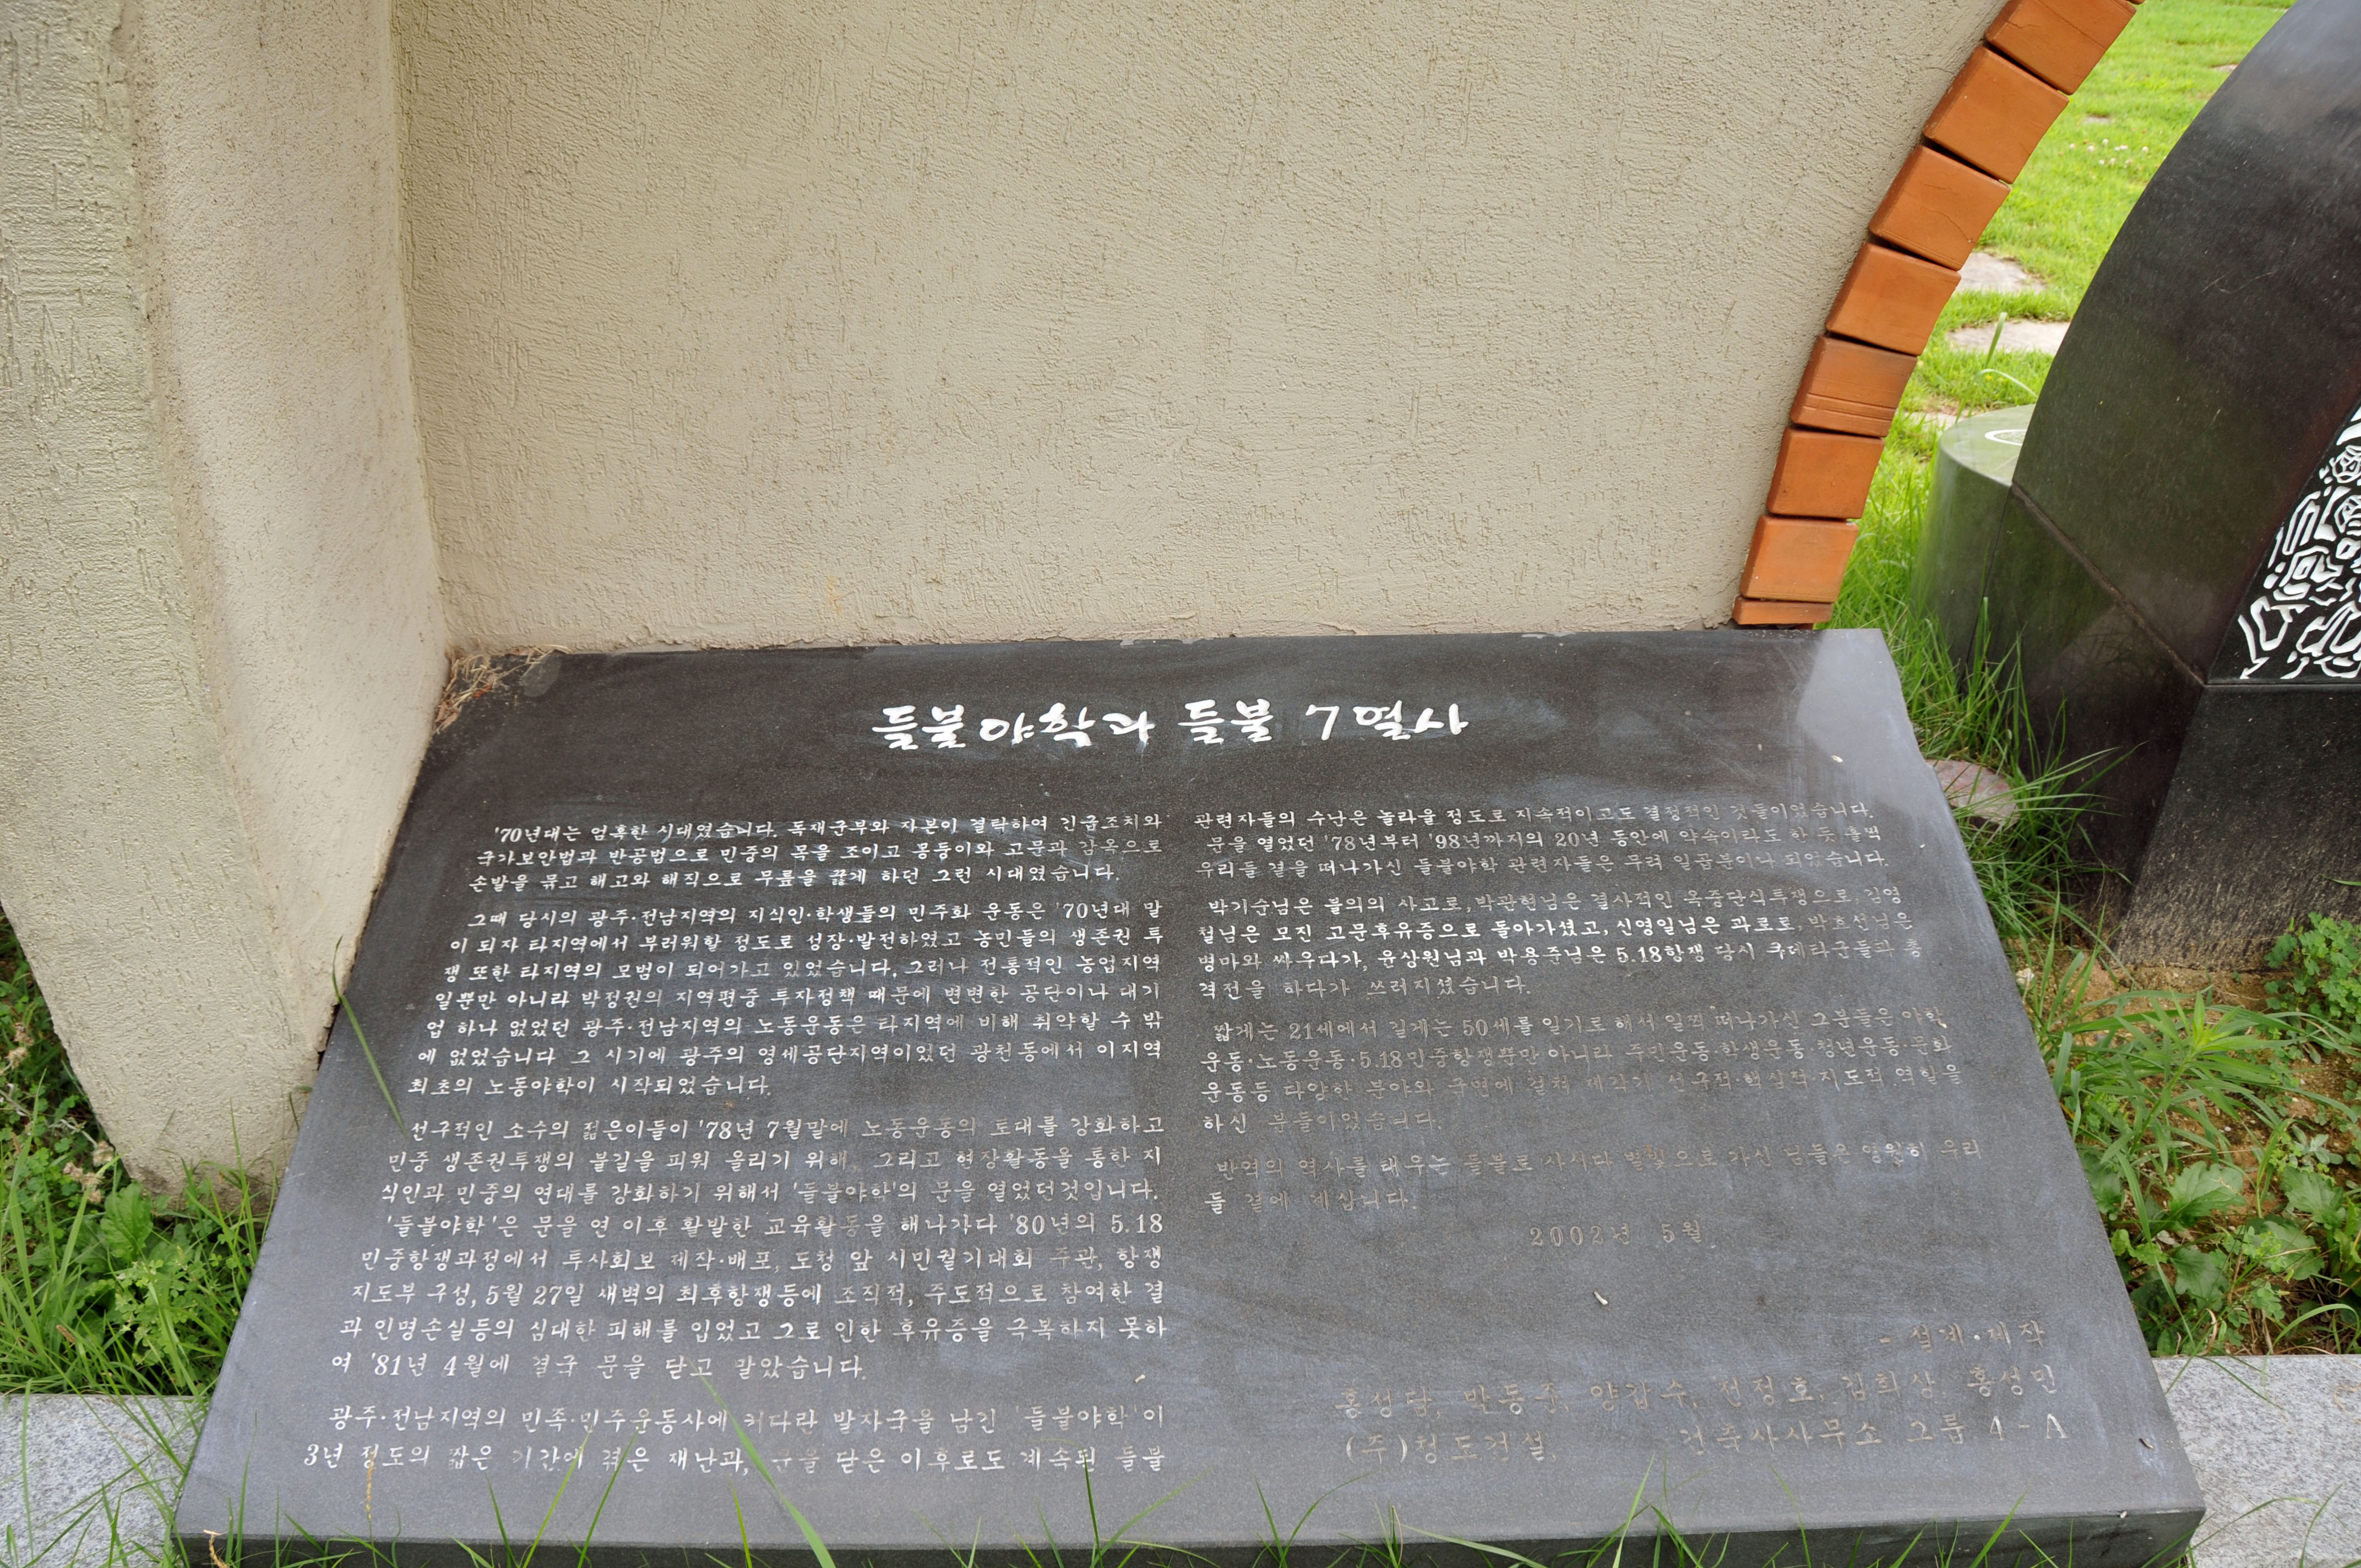 들불야학과 들불 7열사
'70년대는 엄혹한 시대였습니다. 독재군부와 자본이 결탁하여 긴급조치와
국가보안법과 반공법으로 민중의 목을 조이고 몽둥이와 고문과 감옥으로
손발을 묶고 해고와 해직으로 무릎을 꿇게 하던 그런 시대였습니다.
그때 당시의 광주·전남지역의 지식인·학생들의 민주화 운동은 '70년대 말
이 되자 타지역에서 부러워할 정도로 성장·발전하였고 농민들의 생존권 투
쟁 또한 타지역의 모범이 되어가고 있었습니다. 그러나 전통적인 농업지역
일뿐만 아니라 박정권의 지역편중 투자정책 때문에 변변한 공단이나 대기
업 하나 없었던 광주·전남지역의 노동운동은 타지역에 비해 취약할 수 밖
에 없었습니다 그 시기에 광주의 영세공단지역이었던 광천동에서 이지역
최초의 노동야학이 시작되었습니다.
선구적인 소수의 젊은이들이 '78년 7월말에 노동운동의 토대를 강화하고
민중 생존권투쟁의 불길을 피워 올리기 위해, 그리고 현장활동을 통한 지
식인과 민중의 연대를 강화하기 위해서 '들불야학'의 문을 열었던것입니다.
'들불야학'은 문을 연 이후 활발한 교육활동을 해나가다 '80년의 5.18
민중항쟁과정에서 투사회보 제작·배포, 도청 앞 시민궐기대회 주관, 항쟁
지도부 구성, 5월 27일 새벽의 최후항쟁등에 조직적, 주도적으로 참여한 결
과 인명손실등의 심대한 피해를 입었고 그로 인한 후유증을 극복하지 못하
여 '81년 4월에 결국 문을 닫고 말았습니다.
광주·전남지역의 민족·민주운동사에 커다란 발자국을 남긴 '들불야학'이
3년 정도의 짧은 기간에 겪은 재난과, 문을 닫은 이후로도 계속된 들불
관련자들의 수난은 놀라울 정도로 지속적이고도 결정적인 것들이었습니다.
문을 열었던 '78년부터 '98년까지의 20년 동안에 약속이라도 한 듯 훌쩍
우리들 곁을 떠나가신 들불야학 관련자들은 무려 일곱분이나 되었습니다.
박기순님은 불의의 사고로, 박관현님은 결사적인 옥중단식투쟁으로, 김영
철님은 모진 고문후유증으로 돌아가셨고, 신영일님은 과로로, 박효선님은
병마와 싸우다가, 윤상원님과 박용준님은 5.18항쟁 당시 쿠데타군들과 총
격전을 하다가 쓰러지셨습니다.
짧게는 21세에서 길게는 50세를 일기로 해서 일찍 떠나가신 그분들은 야학
운동·노동운동·5.18민중항쟁뿐만 아니라 주민운동·학생운동·청년운동·문화
운동등 다양한 분야와 국면에 걸쳐 제각기 선구적·핵심적·지도적 역할을
하신 분들이었습니다.
반역의 역사를 태우는 들불로 사시다 별빛으로 가신 님들은 영원히 우리
들 곁에 계십니다.
2002년 5월
- 설계·제작
홍성담, 박동주, 양갑수, 전정호, 김희상, 홍성민
(주)청도건설, 건축사사무소 그룹 A-A